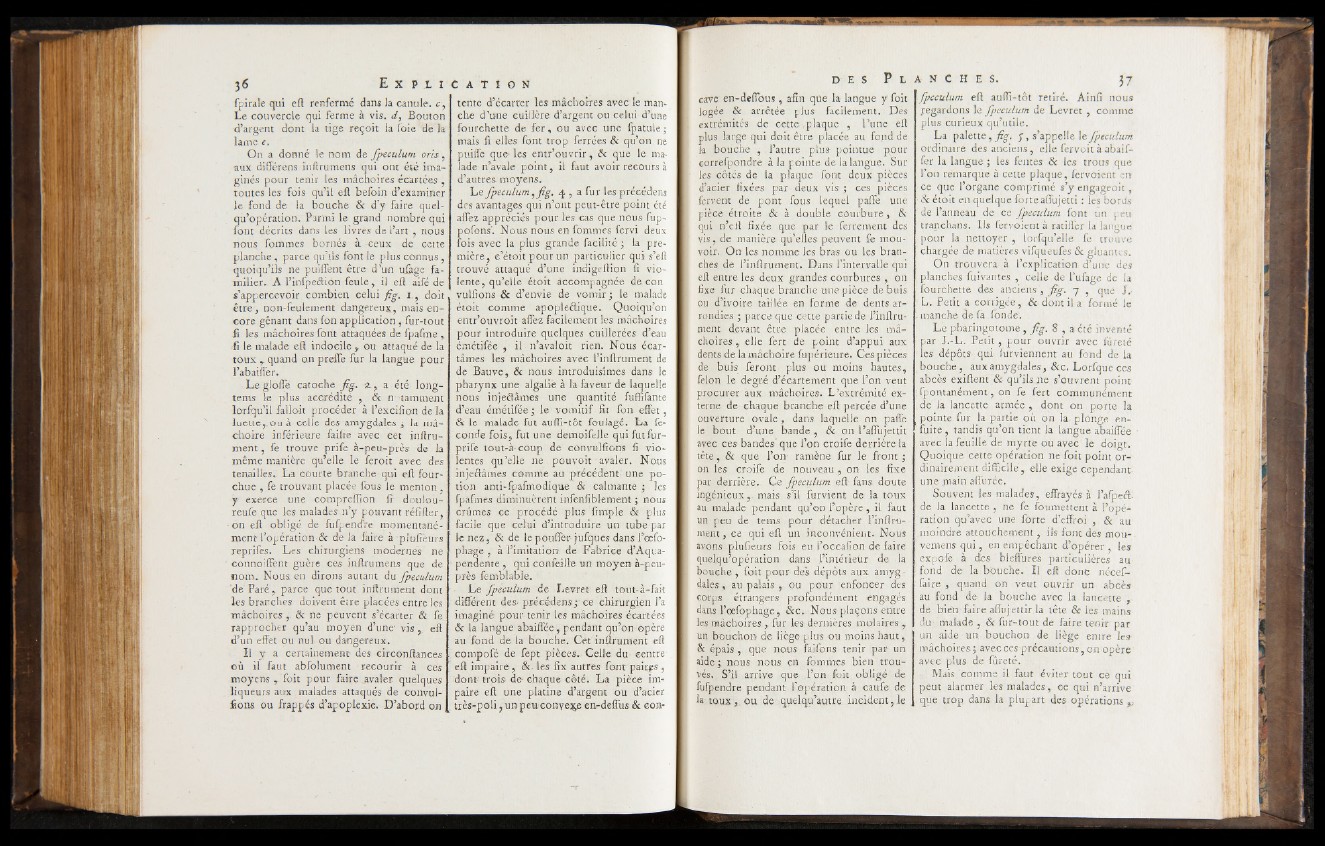 36 EXPLICATION
ſpirale qui eſt renfermé dans la canule. c,
Le couvercle qui ferme à vis. d, Bouton
d'argent dont la tige reçoit la ſoie de la
lame e.
On a donné le nom de ſpeculum oris,
aux différens inſtrumens qui ont été ima-
ginés pour tenir les mâchoires écartées,
toutes les fois qu'il eſt beſoin d'examiner
le fond de la bouche & d'y faire quel-
qu'opération. Parmi le grand nombre qui
ſont décrits dans les livres de l'art, nous
nous ſommes bornés à ceux de cette
planche, parce qu'ils ſont le plus connus,
quoiqu'ils ne puiſſent être d'un uſage fa-
milier. A l'inſpection ſeule, il eſt aiſé de
s'appercevoir combien celui fig. 1, doit
être, non-ſeulement dangereux, mais en-
core gênant dans ſon application, ſur-tout
ſi les mâchoires ſont attaquées de ſpaſme,
ſi le malade eſt indocile, ou attaqué de la
toux, quand on preſſe ſur la langue pour
l'abaiſſer.
Le gloſſe catoche fig. 2, a été long-
tems le plus accrédité, & notamment
lorſqu'il falloit procéder à l'exciſion de la
luette, ou à celle des amygdales, la mâ-
choire inférieure ſaiſie avec cet inſtru-
ment, ſe trouve priſe à-peu-près de la
même manière qu'elle le ſeroit avec des
tenailles. La courte branche qui eſt four-
chue, ſe trouvant placée ſous le menton,
y exerce une compreſſion ſi doulou-
reuſe que les malades n'y pouvant réſiſter,
on eſt obligé de ſuſpendre momentané-
ment l'opération & de la faire à pluſieurs
repriſes. Les chirurgiens modernes ne
connoiſſent guère ces inſtrumens que de
nom. Nous en dirons autant du ſpeculum
de Paré, parce que tout inſtrument dont
les branches doivent être placées entre les
mâchoires, & ne peuvent s'écarter & ſe
rapprocher qu'au moyen d'une vis, eſt
d'un effet ou nul ou dangereux.
Il y a certainement des circonſtances
où il faut abſolument recourir à ces
moyens, ſoit pour faire avaler quelques
liqueurs aux malades attaqués de convul-
ſions ou frappés d'apoplexie. D'abord on
tente d'écarter les mâchoires avec le man-
che d'une cuillère d'argent ou celui d'une
fourchette de fer, ou avec une ſpatule;
mais ſi elles ſont trop ferrées & qu'on ne
puiſſe que les entr'ouvrir, & que le ma-
lade n'avale point, il faut avoir recours à
d'autres moyens.
Le ſpeculum, fig. 4, a ſur les précédens
des avantages qui n'ont peut-être point été
aſſez appréciés pour les cas que nous ſup-
poſons. Nous nous en ſommes ſervi deux
fois avec la plus grande facilité; la pre-
mière, c'étoit pour un particulier qui s'eſt
trouvé attaqué d'une indigeſtion ſi vio-
lente, qu'elle étoit accompagnée de con
vulſions & d'envie de vomir; le malade
étoit comme apoplectique. Quoiqu'on
entr'ouvroit aſſez facilement les mâchoires
pour introduire quelques cuillerées d'eau
émétiſée, il n'avaloit rien. Nous écar-
tâmes les mâchoires avec l'inſtrument de
de Bauve, & nous introduisîmes dans le
pharynx une algalie à la faveur de laquelle
nous injectâmes une quantité ſuffiſante
d'eau émétiſée; le vomitif fit ſon effet,
& le malade fut auſſi-tôt ſoulagé. La ſe-
conde fois, fut une demoiſelle qui fut ſur-
priſe tout-à-coup de convulſions ſi vio-
lentes qu'elle ne pouvoit avaler. Nous
injectâmes comme au précédent une po-
tion anti-ſpaſmodique & calmante; les
ſpaſmes diminuèrent inſenſiblement; nous
crûmes ce procédé plus ſimple & plus
facile que celui d'introduire un tube par
le nez, & de le pouſſer juſques dans l'œſo-
phage, à l'imitation de Fabrice d'Aqua-
pendente, qui conſeille un moyen à-peu-
près ſemblable.
Le ſpeculum de Levret eſt tout-à-fait
différent des précédens; ce chirurgien l'a
imaginé pour tenir les mâchoires écartées
& la langue abaiſſée, pendant qu'on opère
au fond de la bouche. Cet inſtrument eſt
compoſé de ſept pièces. Celle du centre
eſt impaire, & les ſix autres ſont paires,
dont trois de chaque côté. La pièce im-
paire eſt une platine d'argent ou d'acier
très-poli, un peu convexe en-deſſus & con-
DES PLANCHES. 37
cave en-deſſous, afin que la langue y ſoit
logée & arrêtée plus facilement. Des
extrémités de cette plaque, l'une eſt
plus large qui doit être placée au fond de
la bouche, l'autre plus pointue pour
correſpondre à la pointe de la langue. Sur
les côtés de la plaque ſont deux pièces
d'acier fixées par deux vis; ces pièces
ſervent de pont ſous lequel paſſe une
pièce étroite & à double courbure, &
qui n'eſt fixée que par le ferrement des
vis, de manière qu'elles peuvent ſe mou-
voir. On les nomme les bras ou les bran-
ches de l'inſtrument. Dans l'intervalle qui
eſt entre les deux grandes courbures, on
fixe ſur chaque branche une pièce de buis
ou d'ivoire taillée en forme de dents ar-
rondies; parce que cette partie de l'inſtru-
ment devant être placée entre les mâ-
choires, elle ſert de point d'appui aux
dents de la mâchoire ſupérieure. Ces pièces
de buis ſeront plus ou moins hautes,
ſelon le degré d'écartement que l'on veut
procurer aux mâchoires. L'extrémité ex-
terne de chaque branche eſt percée d'une
ouverture ovale, dans laquelle on paſſe
le bout d'une bande, & on l'aſſujettit
avec ces bandes que l'on croiſe derrière la
tête, & que l'on ramène ſur le front;
on les croiſe de nouveau, on les fixe
par derrière. Ce ſpeculum eſt ſans doute
ingénieux, mais s'il ſurvient de la toux
au malade pendant qu'on l'opère, il faut
un peu de tems pour détacher l'inſtru-
ment, ce qui eſt un inconvénient. Nous
avons pluſieurs fois eu l'occaſion de faire
quelqu'opération dans l'intérieur de la
bouche, ſoit pour des dépôts aux amyg-
dales, au palais, ou pour enfoncer des
corps étrangers profondément engagés
dans l'œſophage, &c. Nous plaçons entre
les mâchoires, ſur les dernières molaires,
un bouchon de liège plus ou moins haut,
& épais, que nous faiſons tenir par un
aide; nous nous en ſommes bien trou-
vés. S'il arrive que l'on ſoit obligé de
ſuſpendre pendant l'opération à cauſe de
la toux, ou de quelqu'autre incident, le
ſpeculum eſt auſſi-tôt retiré. Ainſi nous
regardons le ſpeculum de Levret, comme
plus curieux qu'utile.
La palette, fig. 5, s'appelle le ſpeculum
ordinaire des anciens, elle ſervoit à abaiſ-
ſer la langue; les fentes & les trous que
l'on remarque à cette plaque, ſervoient en
ce que l'organe comprimé s'y engageoit,
& étoit en quelque ſorte aſſujetti: les bords
de l'anneau de ce ſpeculum ſont un peu
tranchans. Ils ſervoient à ratiſſer la langue
pour la nettoyer, lorſqu'elle ſe trouve
chargée de matières viſqueuſes & gluantes.
On trouvera à l'explication d'une des
planches ſuivantes, celle de l'uſage de la
fourchette des anciens, fig. 7, que J.
L. Petit a corrigée, & dont il a formé le
manche de ſa ſonde.
Le pharingotome, fig. 8, a été inventé
par J.-L. Petit, pour ouvrir avec ſûreté
les dépôts qui ſurviennent au fond de la
bouche, aux amygdales, &c. Lorſque ces
abcès exiſtent & qu'ils ne s'ouvrent point
ſpontanément, on ſe ſert communément
de la lancette armée, dont on porte la
pointe ſur la partie où on la plonge en-
ſuite, tandis qu'on tient la langue abaiſſée
avec la feuille de myrte ou avec le doigt.
Quoique cette opération ne ſoit point or-
dinairement difficile, elle exige cependant
une main aſſurée.
Souvent les malades, effrayés à l'aſpect
de la lancette, ne ſe ſoumettent à l'opé-
ration qu'avec une ſorte d'effroi, & au
moindre attouchement, ils font des mou-
vemens qui, en empêchant d'opérer, les
expoſe à des bleſſures particulières au
fond de la bouche. Il eſt donc néceſ-
ſaire, quand on veut ouvrir un abcès
au fond de la bouche avec la lancette,
de bien faire aſſujettir la tête & les mains
du malade, & ſur-tout de faire tenir par
un aide un bouchon de liège entre les
mâchoires; avec ces précautions, on opère
avec plus de ſûreté.
Mais comme il faut éviter tout ce qui
peut alarmer les malades, ce qui n'arrive
que trop dans la plupart des opérations,